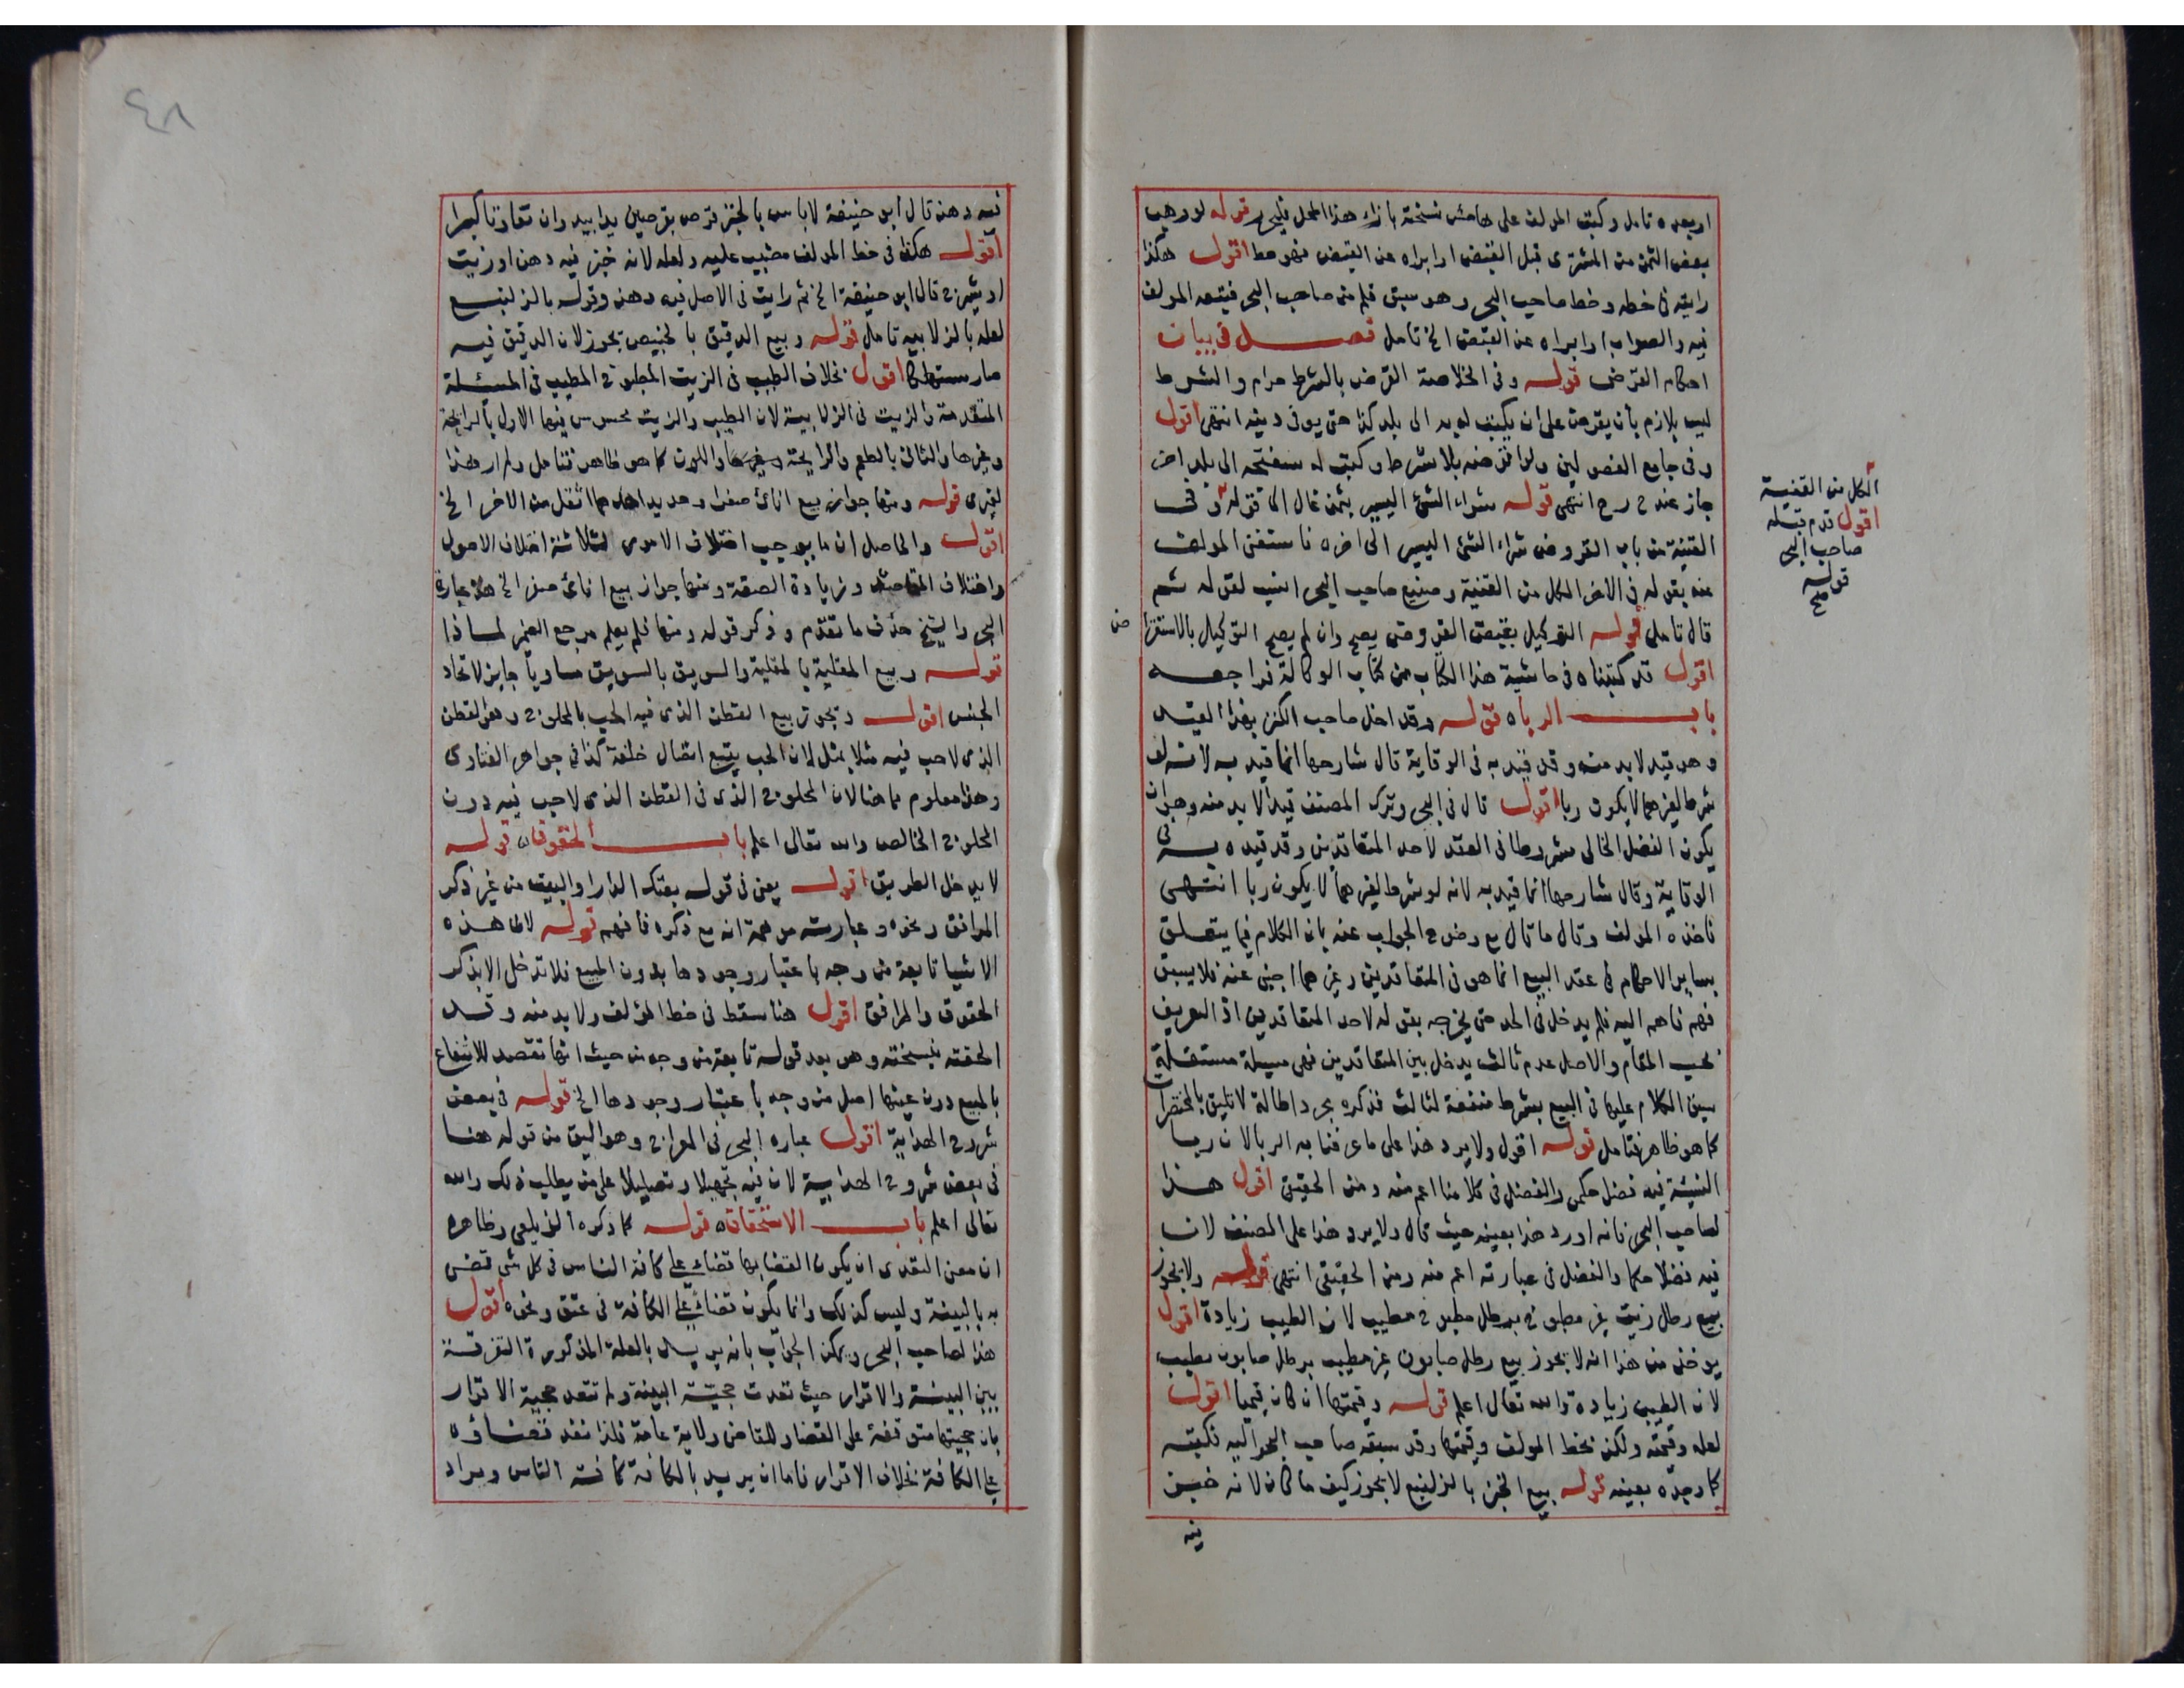 او بعده تامل وكتب المولف على هامش نسخته بازاء هذا المحل فليحرر قوله لو وهب
بعض الثمن من المشترى قبل القبض او ابراه عن القبض فهو حط اقول هكذا
رايته فى خطه وخط صاحب البحر وهو سبق قلم من صاحب البحر فتبعه المولف
فيه والصواب او ابراه عن القبض الخ تامل فصل فى بيان
احكام القرض قوله وفى الخلاصة القرض بالشرط حرام والشرط
ليس بلازم بأن يقرض على ان يكتب له به الى بلد كذا حتى يوفى دينه انتهى اقول
وفى جامع الفصولين ولو اقترضه بلا شرط وكتب له سفتجه الى بلد اخر
جاز عند ح انتهى قوله شراء الشئ اليسير بثمن غال الى قوله وفى
القنية من باب القروض شراء الشئ اليسير الى اخره فاستغنى المولف
عنه بقوله فى الاخر الكل من القنية وصنيع صاحب البحر انسب لقوله ثم
قال تامل قوله التوكيل بقبض القروض يصح وان لم يصح التوكيل بالاستقرا
ض
اقول قد كتبناه فى حاشية هذا الكتاب من كتاب الوكالة فراجعه
باب الرباه قوله وقد اخل صاحب الكنز بهذا القيد
وهو قيد لابد منه وقد قيد به فى الوقاية قال شارحها انما قيد به لانه لو
شرط لغيرهما لا يكون ربا اقول قال فى البحر وترك المصنف قيدا لابد منه وهو ان
يكون الفضل الخالى مشروطا فى العقد لاحد المتعاقدين وقد قيده به فى
الوقاية وقال شارحها انما قيد به لانه لو شرط لغيرهما لا يكون ربا انتهى
فاخذه المولف وقال ما قال مع وضوح الجواب عنه بان الكلام فيما يتعلق
بساير الاحكام فى عقد البيع انما هو فى المتعاقدين وغيرهما اجنبى عنه فلا يسبق
فهم فاهم اليه فلم يدخل فى الحد حتى يخرجه بقوله لاحد المتعاقدين اذ التعريف
بحسب المقام والاصل عدم ثالث يدخل بين المتعاقدين فهى مسيلة مستقلة
سبق الكلام عليها فى البيع بشرط منفعة لثالث فذكره مجرد اطالة لا تليق بالمختصرات
كما هو ظاهر فتامل قوله اقول ولا يرد هذا على ما عرفنا به الربا لان ربا
النسيئة فيه فضل حكمى والفضل فى كلامنا اعم منه ومن الحقيقى اقول هذا
لصاحب البحر فانه اورد هذا بعينه حيث قال ولا يرد هذا على المصنف لان
فيه فضلا حكما والفضل فى عبارته اعم منه ومن الحقيقى انتهى قوله ولا يجوز
بيع رطل زيت غير مطبوخ برطل مطبوخ مطيب لان الطيب زيادة اقول
يوخذ من هذا انه لا يجوز بيع رطل صابون غير مطيب برطل صابون مطيب
لان الطيب زيادة والله تعالى اعلم قوله وقيمتها ان كان قيميا اقول
لعله وقيمته ولكن بخط المولف وقيمتها وقد سبقه صاحب البحر اليه فكتبه
كما وجده بعينه قوله بيع الخبز بالزلنبع لا يجوز كيف ما كان لانه خبز
فيه
الكل من القنية
اقول قدم قبله
صاحب البحر
قوله
صح
٤٨
فيه دهن قال ابو حنيفة لاباس بالخبز قرص بقرصين يدا بيد وان تفاوتا كبرا
اقول هكذا فى خط المولف مضبب عليه ولعله لانه خبز فيه دهن او زيت
او شيرج قال ابو حنيفة الخ ثم رايت فى الاصل فيه دهن وقوله بالزلنبع
لعله بالزلابيه تامل قوله وبيع الدقيق بالخبيص يجوز لان الدقيق فيه
صار مستهلكا اقول بخلاف الطيب فى الزيت المطبوخ المطيب فى المسئلة
المتقدمة والزيت فى الزلابية لان الطيب والزيت محسوس فيهما الاول بالرايحة
وغيرها والثانى بالطعم والرايحة واللون كما هو ظاهر فتامل ولم ار هذا
لغيرى قوله ومنها جواز بيع انائ صفرا وحديد احدهما اثقل من الاخر الخ
اقول والحاصل ان ما يوجب اختلاف الامور لثلاثة اختلاف الاصول
واختلاف المقاصد وزيادة الصنعة ومنها جواز بيع انائ صفر الخ هذا عبارة
البحر والشيخ حذف ما تقدم وذكر قوله ومنها فلم يعلم مرجع الضمير لماذا
قوله وبيع المقلية بالمقلية والسويق بالسويق مساويا جايز لاتحاد
الجنس اقول ويجوز بيع القطن الذى فيه الحب بالمحلوج وهو القطن
الذى لاحب فيه مثلا بمثل لان الحب يتبع اتصال خلقة كذا فى جواهر الفتاوى
وهذا معلوم مما هنا لان المحلوج الذى فى القطن الذى لاحب فيه دون
المحلوج الخالص والله تعالى اعلم باب الحقوق ه قوله
لا يدخل الطريق اقول يعنى فى قوله بعتك الدار او البيت من غير ذكر
المرافق ونحوه وعبارته موهمة انه مع ذكره فافهم قوله لان هذه
الاشيا تابعة من وجه باعتبار وجودها بدون المبيع فلا تدخل الا بذكر
الحقوق والمرافق اقول هنا سقط فى خط المؤلف ولابد منه وقد
الحقته بنسخته وهو بعد قوله تابعة من وجه من حيث انها تقصد للانتفاع
بالمبيع دون عينها اصل من وجه باعتبار وجودها الخ قوله فى بعض
شروح الهداية اقول عباره البحر فى المعراج وهو اليق من قوله هنا
فى بعض شروح الهداية لان فيه تجهيلا وتضليلا على من يطلب ذلك والله
تعالى اعلم باب الاستحقاق ه قوله كما ذكره الزيلعى وظاهره
ان معنى التعدى ان يكون القضا بها قضاء على كافة الناس فى كل شى قضى
به بالبينة وليس كذلك وانما يكون قضاء على الكافة فى عتق ونحوه اقول
هذا لصاحب البحر ويمكن الجواب بانه يريد بالعلة المذكورة التفرقة
بين البينة والاقرار حيث تعدت حجية البينة ولم تتعد حجية الاقرار
بان حجيتها متوقفة على القضا وللقاضى ولاية عامة فلذا نفذ قضاؤه
على الكافة بخلاف الاقرار فاما ان يريد بالكافة كافة الناس ويراد